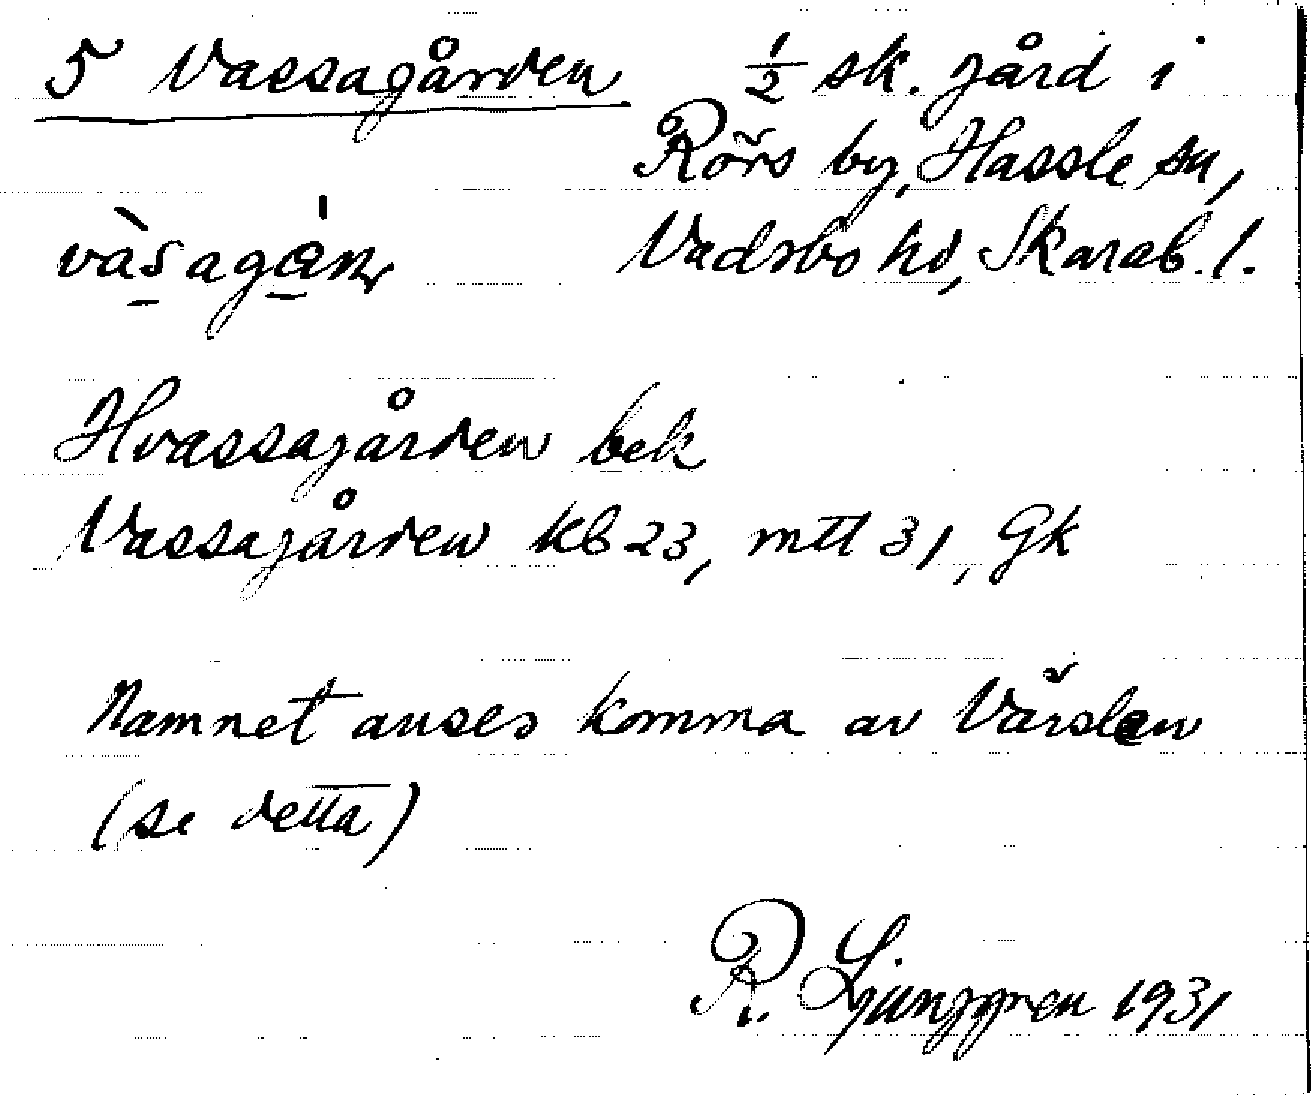 5 Vassagården ½ sk. gård i
Rörs by, Hassle sn,
Vadsbo hd, Skarab. l.
Hvassagården bek
Vassagården kb 23, mtl 31, Gk
Namnet anses komma av Värslen
(se detta)
R. Ljunggren 1931